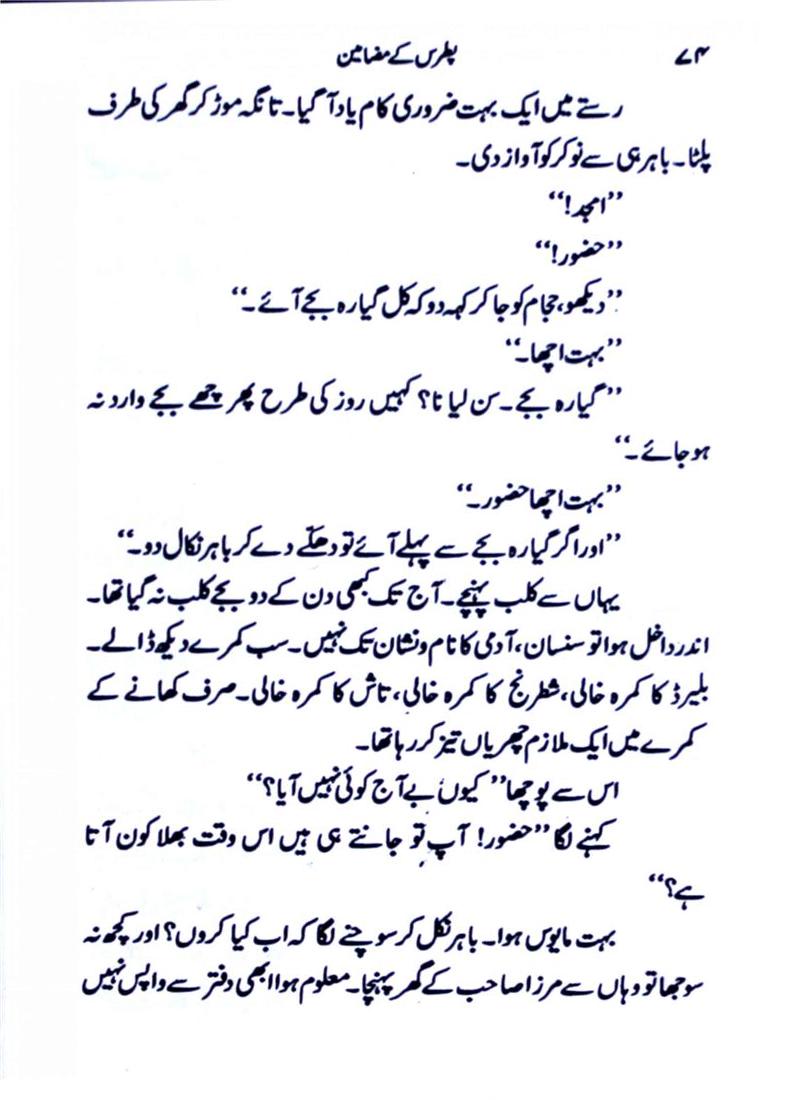 ۷۴ پطرس کے مضامین
رستے میں ایک بہت ضروری کام یاد آ گیا۔ تانگہ موڑ کر گھر کی طرف
پلٹا۔ باہر ہی سے نوکر کو آواز دی۔
’’امجد!‘‘
’’حضور!‘‘
’’دیکھو، حجام کو جا کر کہہ دو کہ کل گیارہ بجے آئے۔‘‘
’’بہت اچھا۔‘‘
’’گیارہ بجے۔ سن لیا نا؟ کہیں روز کی طرح پھر چھے بجے وارد نہ
ہو جائے۔‘‘
’’بہت اچھا حضور۔‘‘
’’اور اگر گیارہ بجے سے پہلے آئے تو دھکّے دے کر باہر نکال دو۔‘‘
یہاں سے کلب پہنچے۔ آج تک کبھی دن کے دو بجے کلب نہ گیا تھا۔
اندر داخل ہوا تو سنسان، آدمی کا نام و نشان تک نہیں۔ سب کمرے دیکھ ڈالے۔
بلیرڈ کا کمرہ خالی، شطرنج کا کمرہ خالی، تاش کا کمرہ خالی۔ صرف کھانے کے
کمرے میں ایک ملازم چھریاں تیز کر رہا تھا۔
اس سے پوچھا ’’کیوں بے آج کوئی نہیں آیا؟‘‘
کہنے لگا ’’حضور! آپ تو جانتے ہی ہیں اس وقت بھلا کون آتا
ہے؟‘‘
بہت مایوس ہوا۔ باہر نکل کر سوچنے لگا کہ اب کیا کروں؟ اور کچھ نہ
سوجھا تو وہاں سے مرزا صاحب کے گھر پہنچا۔ معلوم ہوا ابھی دفتر سے واپس نہیں